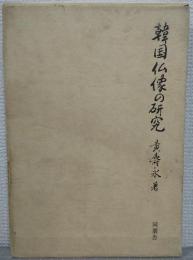 韓国仏像の研究
黄壽永著
同朋舎